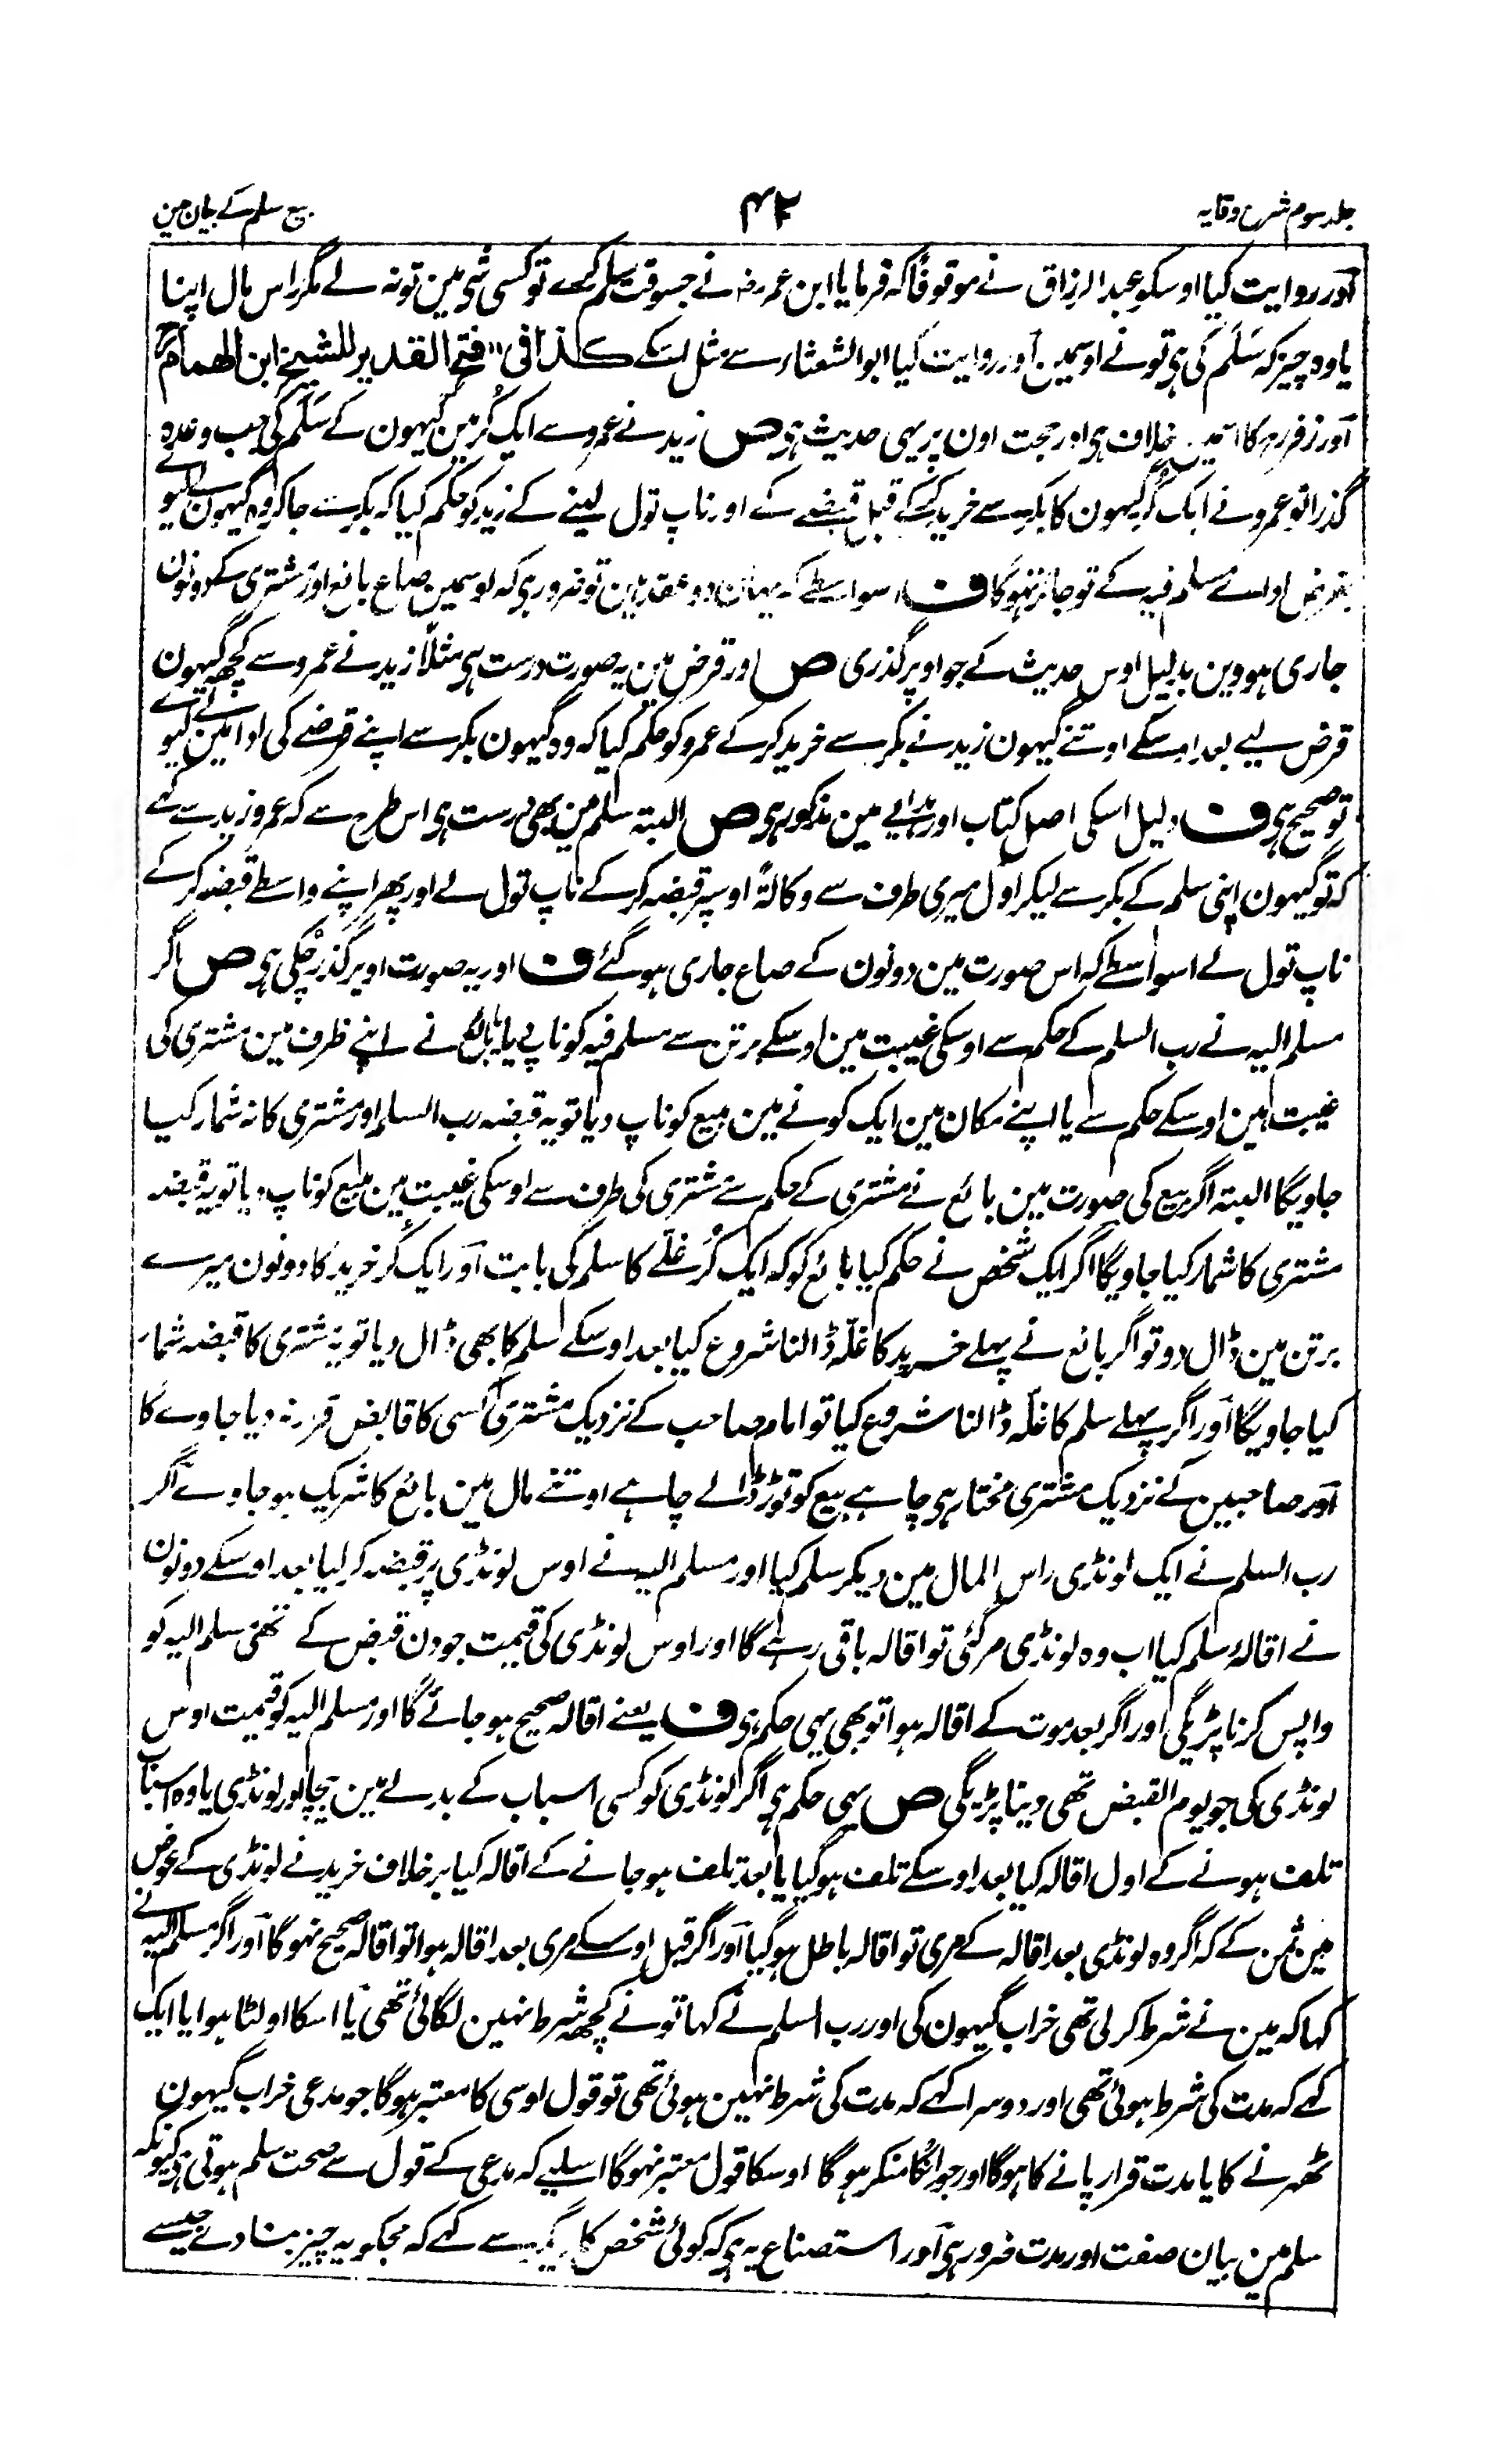 جلد سوم شرح وقایہ
۴۲
بیع سلم کے بیان مین
آور روایت کیا اوسکو عبد الرزاق نے موقوفاً کہ فرمایا ابن عمر رضہ نے جسوقت سلم کرے تو کسی شی مین تو نہ لے مگر راس مال اپنا
یا وہ چیز کہ سَلَم کی ہی تو نے اوسمین آور روایت کیا ابو الشعثاء سے مثل اسکے کذا فی فتح القدیر للشیخ ابن الھمام
آور زفر رح کا اسمین خلاف ہی اور حجت اون پر یہی حدیث ہی ص زید نے عمرو سے ایک کُر مین گیہون کے سَلَم کی جب وعدہ
گذرا تو عمرو نے ایک کُر گیہون کا بکر سے خرید کرکے قبل قبضے کے اور ناپ تول لینے کے زید کو حکم کیا کہ بکر سے جا کر وہ گیہون لے لیوے
بغرض اداے مسلم فیہ کے تو جائز نہوگا ف اسواسطے کہ یہان دو عقد ہین تو ضرور ہی کہ اوسمین صاع بائع اور مشتری کے دونون
جاری ہووین بدلیل اوس حدیث کے جو اوپر گذری ص اور قرض مین یہ صورت درست ہی مثلاً زید نے عمرو سے کچھ گیہون
قرض لیے بعد اسکے اوتنے گیہون زید نے بکر سے خرید کرکے عمرو کو حکم کیا کہ وہ گیہون بکر سے اپنے قرضے کی ادا مین لے لیوے
تو صحیح ہی ف دلیل اسکی اصل کتاب اور ہدایے مین مذکور ہی ص البتہ سلم مین بھی درست ہی اس طرح سے کہ عمرو زید سے کہے
کہ تو گیہون اپنی سلم کے بکر سے لیکر اول میری طرف سے وکالۃً اوسپر قبضہ کرکے ناپ تول لے اور پھر اپنے واسطے قبضہ کرکے
ناپ تول لے اسواسطے کہ اس صورت مین دونون کے صاع جاری ہوگئے ف اور یہ صورت اوپر گذر چکی ہی ص اگر
مسلم الیہ نے رب السلم کے حکم سے اوسکی غیبت مین اوسکے برتن سے مسلم فیہ کو ناپے یا بائع نے اپنے ظرف مین مشتری کی
غیبت مین اوسکے حکم سے یا اپنے مکان مین ایک کونے مین مبیع کو ناپ دیا تو یہ قبضہ رب السلم اور مشتری کا نہ شمار کیا
جاویگا البتہ اگر بیع کی صورت مین بائع نے مشتری کے حکم سے مشتری کی ظرف سے اوسکی غیبت مین مبیع کو ناپ دیا تو یہ قبضہ
مشتری کا شمار کیا جاویگا اگر ایک شخص نے حکم کیا بائع کو کہ ایک کُر غلّے کا سلم کی بابت آور ایک کُر خرید کا دونون میرے
برتن مین ڈال دو تو اگر بائع نے پہلے خرید کا غلّہ ڈالنا شروع کیا بعد اوسکے سلم کا بھی ڈال دیا تو یہ مشتری کا قبضہ شمار
کیا جاویگا آور اگر پہلے سلم کا غلّہ ڈالنا شروع کیا تو امام صاحب کے نزدیک مشتری کسی کا قابض قرار نہ دیا جاوے گا
آور صاحبین کے نزدیک مشتری مختار ہی چاہے بیع کو توڑ ڈالے چاہے اوتنے مال مین بائع کا شریک ہو جاوے آگر
رب السلم نے ایک لونڈی راس المال مین دیکر سلم کیا اور مسلم الیہ نے اوس لونڈی پر قبضہ کر لیا بعد اوسکے دونون
نے اقالۂ سلم کیا اب وہ لونڈی مرگئی تو اقالہ باقی رہے گا اور اوس لونڈی کی قیمت جو دن قبض کے تھی مسلم الیہ کو
واپس کرنا پڑیگی اور اگر بعد موت کے اقالہ ہوا تو بھی یہی حکم ہی ف یعنے اقالہ صحیح ہو جائے گا اور مسلم الیہ کو قیمت اوس
لونڈی کی جو یوم القبض تھی دینا پڑیگی ص یہی حکم ہی اگر لونڈی کو کسی اسباب کے بدلے مین بیچا اور لونڈی یا وہ اسباب
تلف ہونے کے اول اقالہ کیا بعد اوسکے تلف ہوگیا یا بعد تلف ہو جانے کے اقالہ کیا برخلاف خریدنے لونڈی کے عوض
مین ثمن کے کہ اگر وہ لونڈی بعد اقالہ کے مری تو اقالہ باطل ہوگیا آور اگر قبل اوسکے مری بعد اقالہ ہوا تو اقالہ صحیح نہوگا آور اگر مسلم الیہ نے
کہا کہ مین نے شرط کر لی تھی خراب گیہون کی اور رب السلم نے کہا تو نے کچھ شرط نہین لگائی تھی یا اسکا اولٹا ہوا یا ایک
کہے کہ مدت کی شرط ہوئی تھی اور دوسرا کہے کہ مدت کی شرط نہین ہوئی تھی تو قول اوسی کا معتبر ہوگا جو مدعی خراب گیہون
ٹھہرنے کا یا مدت قرار پانے کا ہوگا اور جو انکا منکر ہوگا اوسکا قول معتبر نہوگا اسلیے کہ مدعی کے قول سے صحت سلم ہوتی ہی کیونکہ
سلم مین بیان صفت اور مدت ضرور ہی آور استصناع یہ ہی کہ کوئی شخص کاریگر سے کہے کہ مجکو یہ چیز بنا دے جیسے